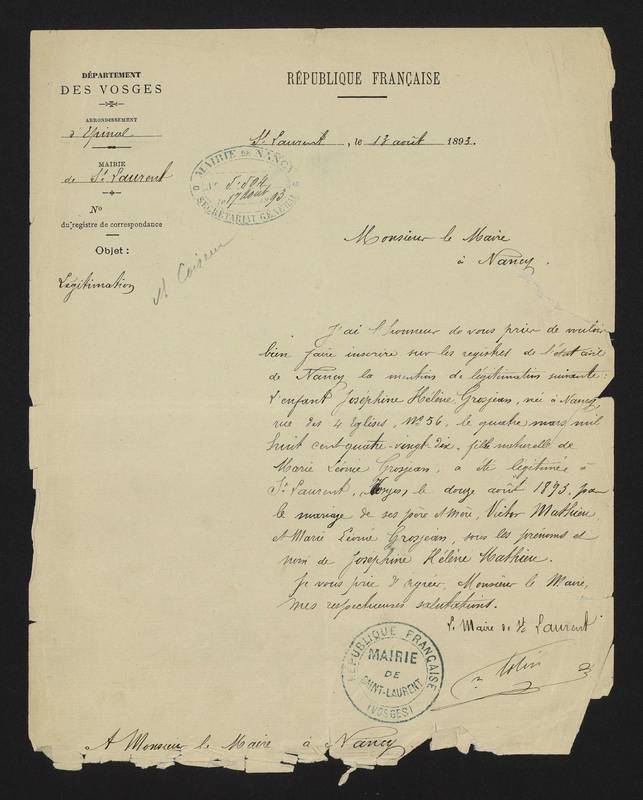 DÉPARTEMENT
DES VOSGES
ARRONDISSEMENT
d'Epinal
MAIRIE
de St Laurent
No
du registre de correspondance
Objet :
Légitimation
RÉPUBLIQUE FRANÇAISE
St Laurent, le 13 août 1893.
MAIRIE DE NANCY
17 août 93
SECRÉTARIAT GÉNÉRAL
Monsieur le Maire
à Nancy.
J'ai l'honneur de vous prier de vouloir
bien faire inscrire sur les registres de l'état civil
de Nancy la mention de légitimation suivante :
L'enfant Joséphine Hélène Grosjean, née à Nancy
rue des 4 Eglises, No 56, le quatre mars mil
huit cent quatre-vingt-dix, fille naturelle de
Marie Léonie Grosjean, a été légitimée à
St Laurent, Vosges, le douze août 1893, par
le mariage de ses père et mère, Victor Mathieu
et Marie Léonie Grosjean, sous les prénoms et
nom de Joséphine Hélène Mathieu.
Je vous prie d'agréer, Monsieur le Maire,
mes respectueuses salutations.
Le Maire de St Laurent
RÉPUBLIQUE FRANÇAISE
MAIRIE
DE
SAINT-LAURENT
(VOSGES)
A Monsieur le Maire à Nancy